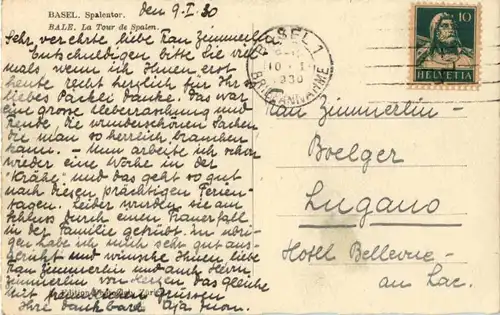 BASEL. Spalentor.
BALE. La Tour de Spalen.
den 9.I.30
Sehr verehrte, liebe Frau Zimmerlin.
Entschuldigen bitte Sie viel-
mals wenn ich Ihnen erst
heute recht herzlich für Ihr
liebes Päckli danke. Das war
eine grosse Ueberraschung und
Freude, die wunderschönen Sachen
die man so herrlich brauchen
kann. – Nun arbeite ich schon
wieder eine Woche in der
"Krähe" und das geht so gut
nach diesen prächtigen Ferien-
tagen. Leider wurden sie am
Schluss durch einen Trauerfall
in der Familie getrübt. Im übri-
gen habe ich mich sehr gut aus-
geruht und wünsche Ihnen liebe
Frau Zimmerlin und auch Herrn
Zimmerlin von Herzen das gleiche
Mit freundlichen Grüssen
Ihre dankbare
BASEL 1
10.I.
1930
BRIEFANNAHME
10
HELVETIA
Frau Zimmerlin-
Boelger
Lugano
Hotel Bellevue-
au Lac.